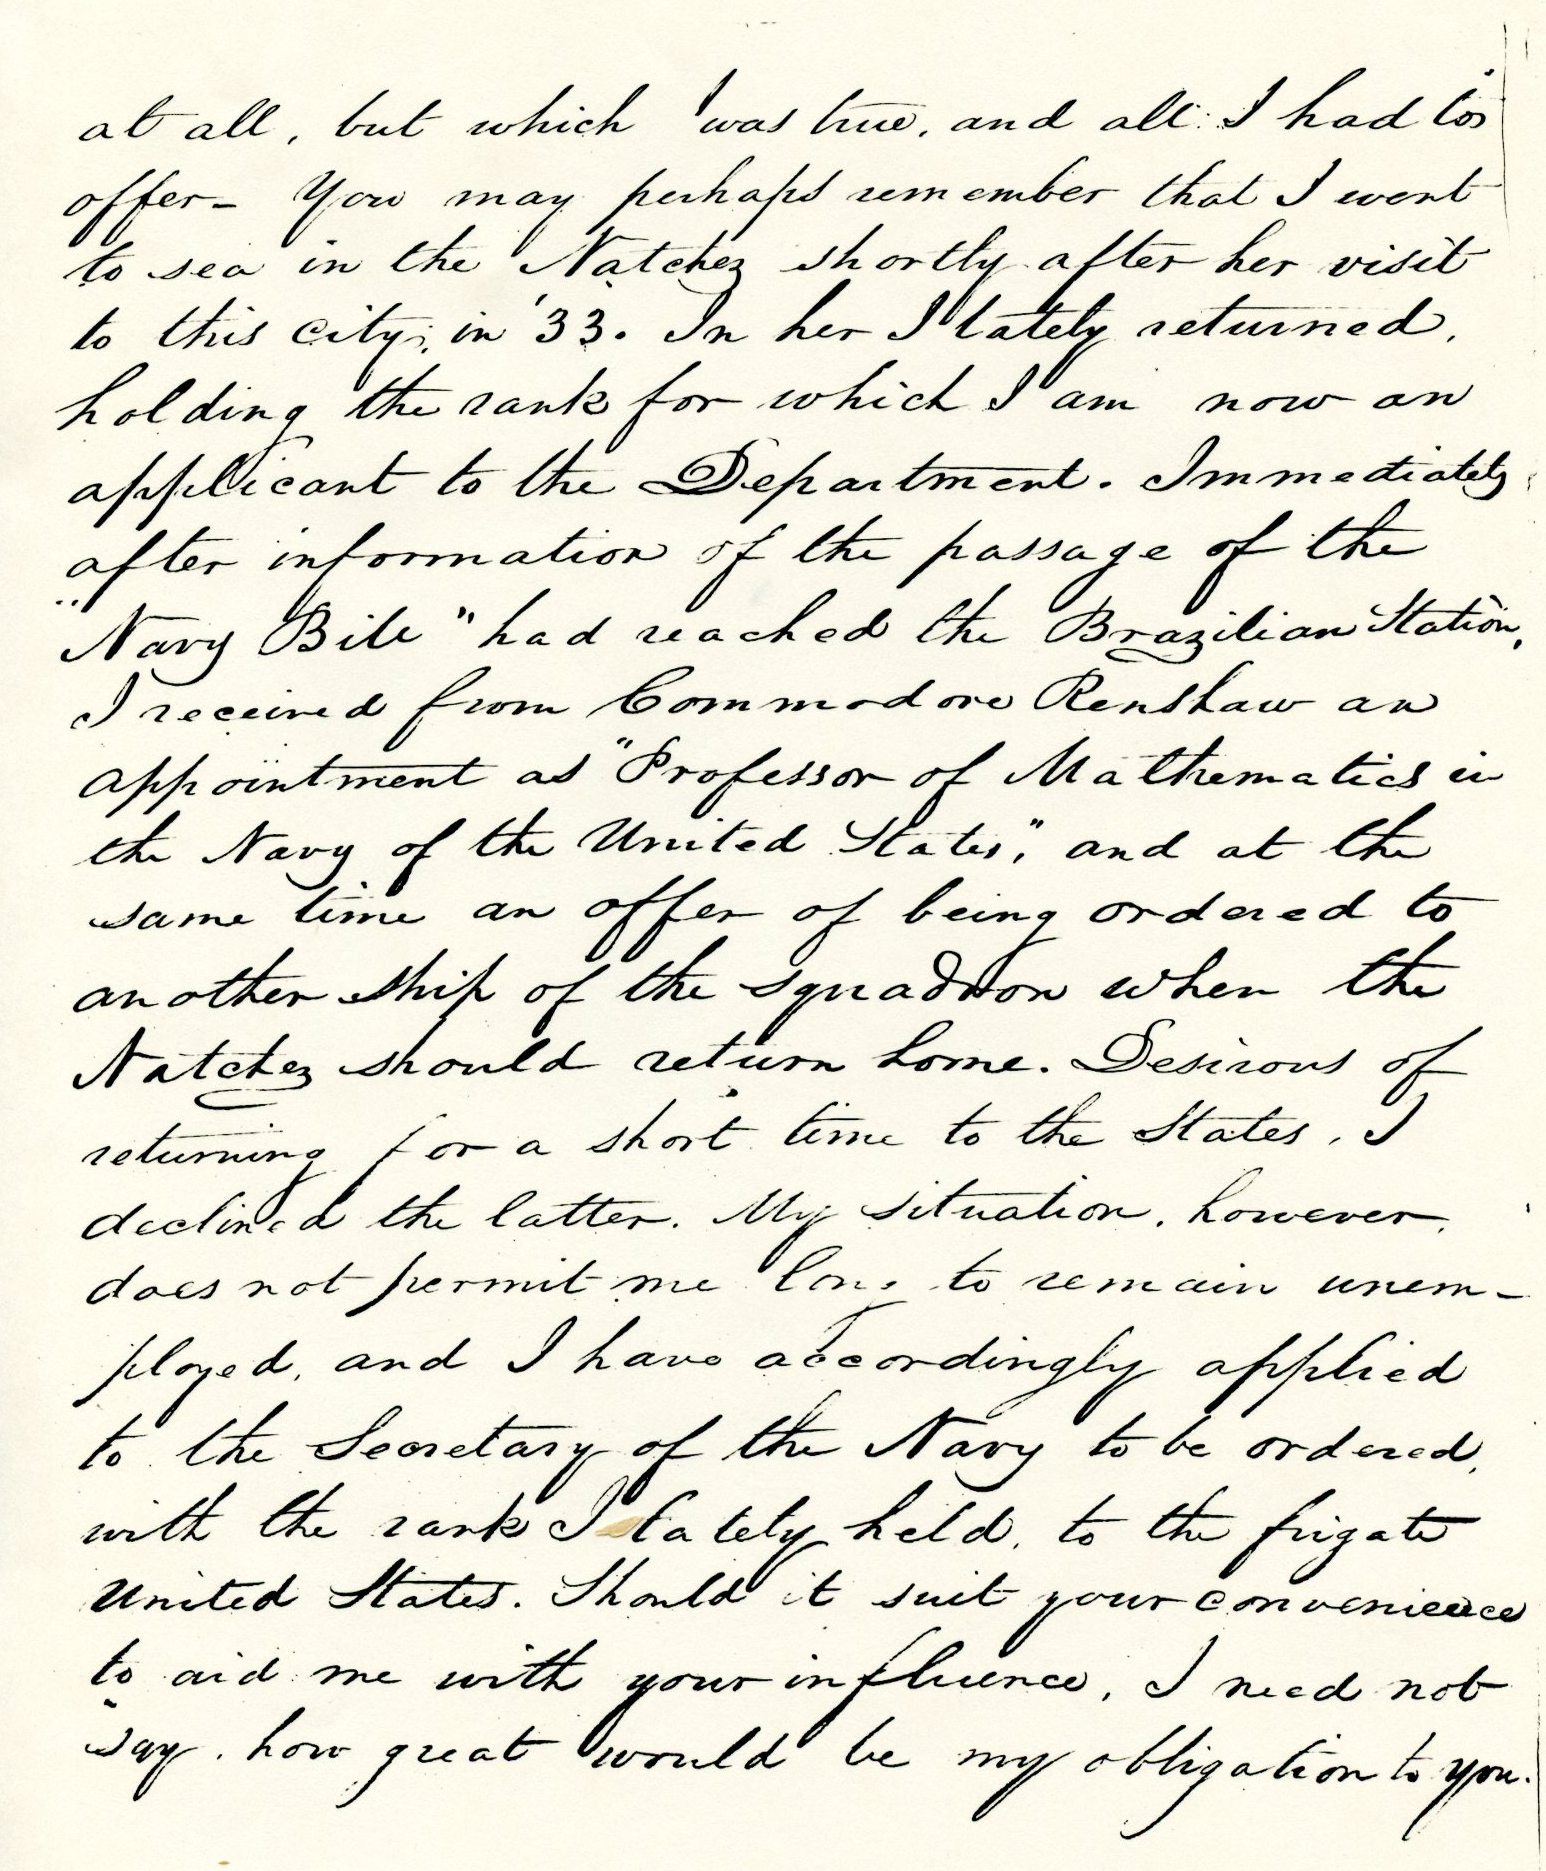 at all, but which was true, and all I had to
offer_ You may perhaps remember that I went
to sea in the Natchez shortly after her visit
to this city, in '33. In her I lately returned,
holding the rank for which I am now an
applicant to the Department. Immediately
after information of the passage of the
"Navy Bill" had reached the Brazilian Station,
I received from Commodore Renshaw an
appointment as "Professor of Mathematics in
the Navy of the United States", and at the
same time an offer of being ordered to
another ship of the squadron when the
Natchez should return home. Desirous of
returning for a short time to the States, I
declined the latter. My situation, however,
does not permit me long to remain unem-
ployed, and I have accordingly applied
to the Secretary of the Navy to be ordered,
with the rank I lately held, to the frigate
United States. Should it suit your convenience
to aid me with your influence, I need not
say, how great would be my obligation to you.